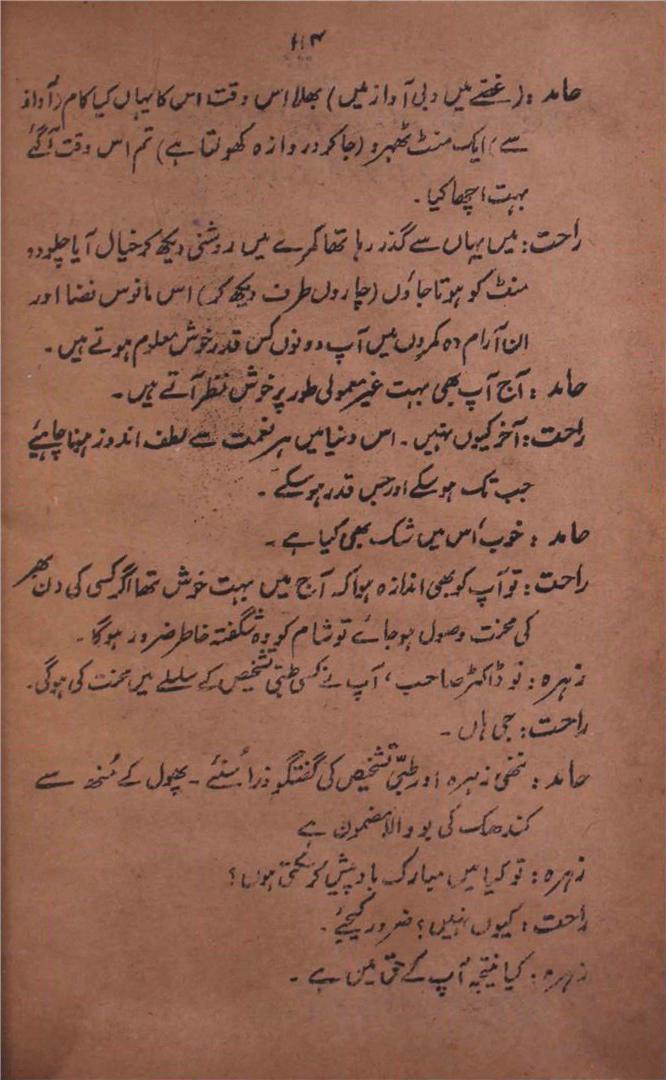 ۱۱۴
حامد :( غصّے میں دبی آواز میں ) بھلا اِس وقت اس کا یہاں کیا کام (آواز
سے ) ایک منٹ ٹھہرو (جا کر دروازہ کھولتا ہے) تم اس وقت آ گئے
بہت اچھا کیا ۔
راحت : میں یہاں سے گذر رہا تھا کمرے میں روشنی دیکھ کر خیال آیا چلو دو
منٹ کو ہوتا جاؤں (چاروں طرف دیکھ کر) اس مانوس فضا اور
ان آرام دہ کمروں میں آپ دونوں کس قدر خوش معلوم ہوتے ہیں ۔
حامد : آج آپ بھی بہت غیر معمولی طور پر خوش نظر آتے ہیں ۔
راحت : آخر کیوں نہیں ۔ اس دنیا میں ہر نعمت سے لطف اندوز ہونا چاہیئے
جب تک ہو سکے اور جس قدر ہو سکے ۔
حامد : خوب اُس میں شک بھی کیا ہے ۔
راحت : تو آپ کو بھی اندازہ ہوا کہ آج میں بہت خوش تھا اگر کسی کی دن بھر
کی محنت وصول ہو جائے تو شام کو وہ شگفتہ خاطر ضرور ہوگا ۔
زہرہ : تو ڈاکٹر صاحب ، آپ نے کسی طبّی تشخیص کے سلسلے میں محنت کی ہوگی ۔
راحت : جی ہاں ۔
حامد : ننھی زہرہ اور طبّی تشخیص کی گفتگو ذرا سُنئے ۔ پھول کے مُنھ سے
گندھک کی بو والا مضمون ہے
زہرہ : تو کیا میں مبارک باد پیش کر سکتی ہوں ؟
راحت : کیوں نہیں ؟ ضرور کیجئے ۔
زہرہ : کیا نتیجہ آپ کے حق میں ہے ۔